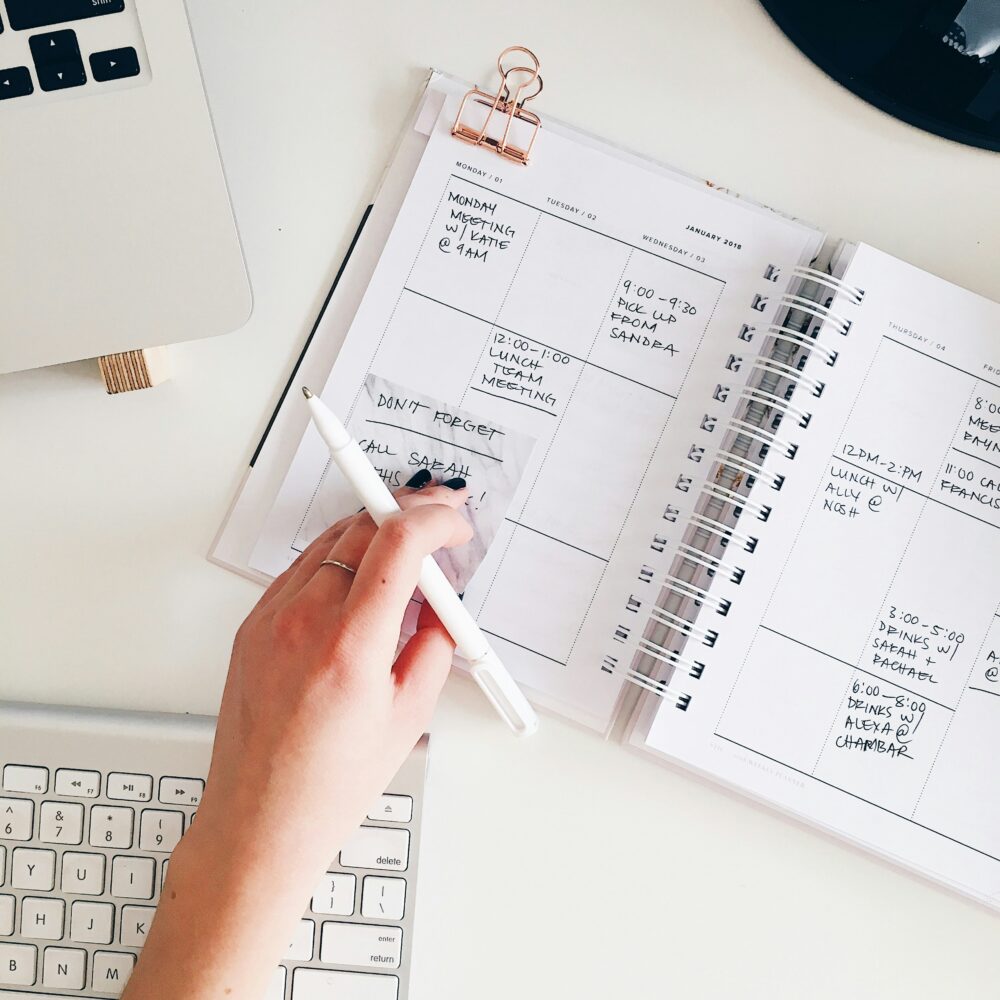 shift
MONDAY / 01
MONDAY
MEETING
W/ KATIE
@ 9AM
TUESDAY / 02
12:00-1:00
LUNCH
TEAM
MEETING
JANUARY 2018
WEDNESDAY / 03
9:00-9:30
PICK UP
FROM
SANDRA
DON'T FORGET
CALL SARAH
THIS
!
THURSDAY / 04
12PM-2PM
LUNCH W/
ALLY @
NOSH
FRI
8:0
MEE
RAYN
11:00 CAL
FRANCIS
3:00-5:00
DRINKS W/
SARAH +
RACHAEL
6:00-8:00
DRINKS W/
ALEXA @
CHAMBAR
A
@
WEEKLY PLANNER
F6 F7 F8 F9
^ & * (
6 7 8 9
delete
Y U I
} |
] \
H J K
enter
return
B N M